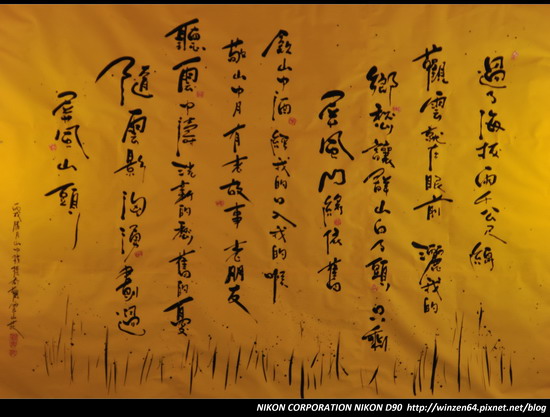 過了海拔兩千公尺線
觀雲就在眼前 灑我的
鄉愁讓群山白了頭 只剩
屏風門綠依舊
飲山中酒 經我的口入我的喉
敬山中月 有老故事 老朋友
聽風中濤 洗新的愁 舊的憂
隨雲影 洶湧 劃過
屏風山頭
NIKON CORPORATION NIKON D90 http://winzen64.pixnet.net/blog